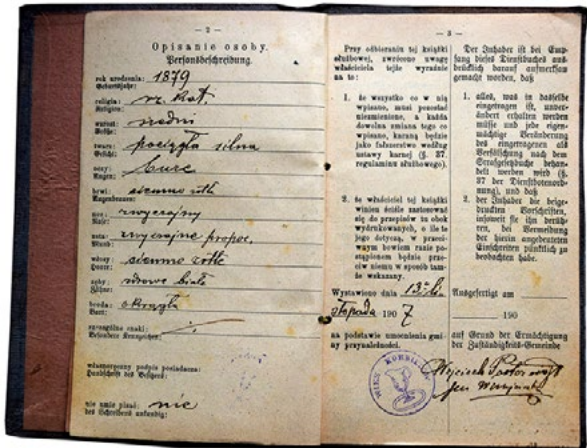 — 2 —
Opisanie osoby.
Personsbeschreibung.
rok urodzenia: 1879
Geburtsjahr:
religia: rz. kat.
Religion:
wzrost: średni
Größe:
twarz: pociągła silna
Gesicht:
oczy: bure
Augen:
brwi: ciemno żółte
Augenbrauen:
nos: zwyczajny
Nase:
usta: zwyczajne propor.
Mund:
włosy: ciemno żółte
Haare:
zęby: zdrowe białe
Zähne:
broda: okrągła
Bart:
szczególne znaki:
Besondere Kennzeichen:
własnoręczny podpis posiadacza:
Handschrift des Besitzers:
nie umie pisać: nie
des Schreibens unkundig:
— 3 —
Przy odbieraniu tej książki
służbowej, zwrócono uwagę
właściciela tejże wyraźnie
na to:
1. że wszystko co w nią
wpisano, musi pozostać
niezmienione, a każda
dowolna zmiana tego co
wpisano, karaną będzie
jako fałszerstwo według
ustawy karnej (§. 37.
regulaminu służbowego).
2. że właściciel tej książki
winien ściśle zastosować
się do przepisów tu obok
wydrukowanych, o ile te
jego dotyczą, w przeci-
wnym bowiem razie po-
stąpionem będzie prze-
ciw niemu w sposób tam-
że wskazany.
Wystawiono dnia 13.
190 7
na podstawie umocnienia gmi-
ny przynależności.
Der Inhaber ist bei Emp-
fang dieses Dienstbuches aus-
drücklich darauf aufmerksam
gemacht worden, daß
1. alles, was in dasselbe
eingetragen ist, unver-
ändert erhalten werden
müsse und jede eigen-
mächtige Veränderung
des eingetragenen als
Verfälschung nach dem
Strafgesetzbuche behan-
delt werden wird (§.
37 der Dienstbotenord-
nung), und daß
2. der Inhaber die beige-
druckten Vorschriften,
insoweit sie ihn berüh-
ren, bei Vermeidung
der hierin angedeuteten
Einschriften pünktlich zu
beobachten habe.
Ausgefertigt am
190
auf Grund der Ermächtigung
der Zuständigkeits-Gemeinde
Wojciech